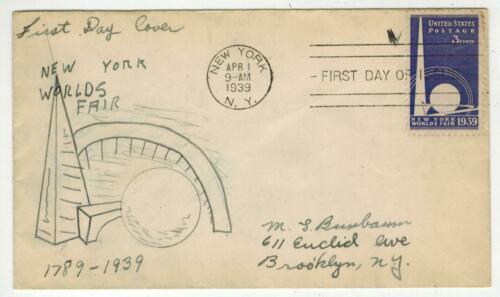 First Day Cover
NEW YORK
WORLDS
FAIR
1789-1939
NEW YORK
APR 1
9-AM
1939
N.Y.
FIRST DAY OF I
UNITED STATES
POSTAGE
3 CENTS
NEW YORK
WORLD'S FAIR
1939
M. S. Buxbaum
611 Euclid Ave
Brooklyn, N.Y.